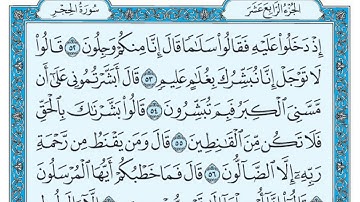 الجزء الرابع عشر سورة الحجر
إِذْ دَخَلُوا۟ عَلَيْهِ فَقَالُوا۟ سَلَٰمًا قَالَ إِنَّا مِنكُمْ وَجِلُونَ ٥٢ قَالُوا۟
لَا تَوْجَلْ إِنَّا نُبَشِّرُكَ بِغُلَٰمٍ عَلِيمٍ ٥٣ قَالَ أَبَشَّرْتُمُونِى عَلَىٰٓ أَن
مَّسَّنِىَ ٱلْكِبَرُ فَبِمَ تُبَشِّرُونَ ٥٤ قَالُوا۟ بَشَّرْنَٰكَ بِٱلْحَقِّ
فَلَا تَكُن مِّنَ ٱلْقَٰنِطِينَ ٥٥ قَالَ وَمَن يَقْنَطُ مِن رَّحْمَةِ
رَبِّهِۦٓ إِلَّا ٱلضَّآلُّونَ ٥٦ قَالَ فَمَا خَطْبُكُمْ أَيُّهَا ٱلْمُرْسَلُونَ